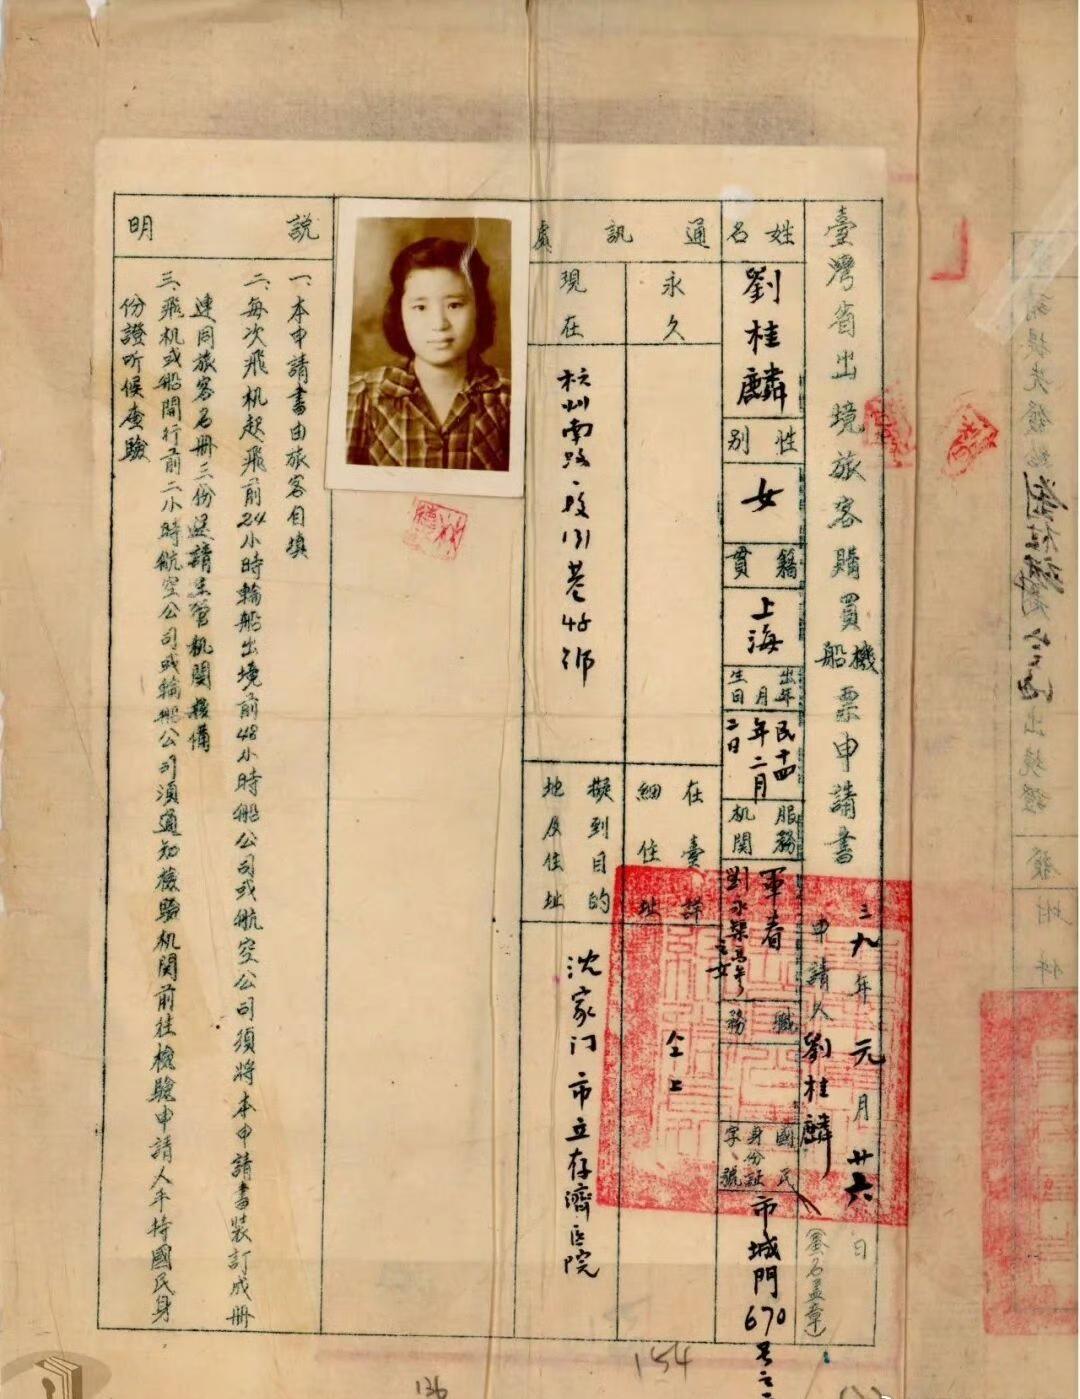 臺灣省出境旅客購買機船票申請書
三九年元月廿六日
申請人劉桂麟
(簽名蓋章)
姓名
劉桂麟
性別
女
籍貫
上海
出生年月日
民十四年二月二日
服務机関
軍眷
劉永
之女
職務
國民身份証字號
市城門670号之
通訊處
永久
現在
杭州南路段131巷45号
在臺詳細住址
仝上
擬到目的地及住址
沈家门市立存濟医院
說明
一、本申請書由旅客自填
二、每次飛机起飛前24小時輪船出境前48小時船公司或航空公司須將本申請書裝訂成冊
連同旅客名冊三份送請主管机関核備
三、飛机或船開行前二小時航空公司或輪船公司須通知檢驗机関前往檢驗申請人手持國民身
份證听候查驗
154
136
劉桂麟